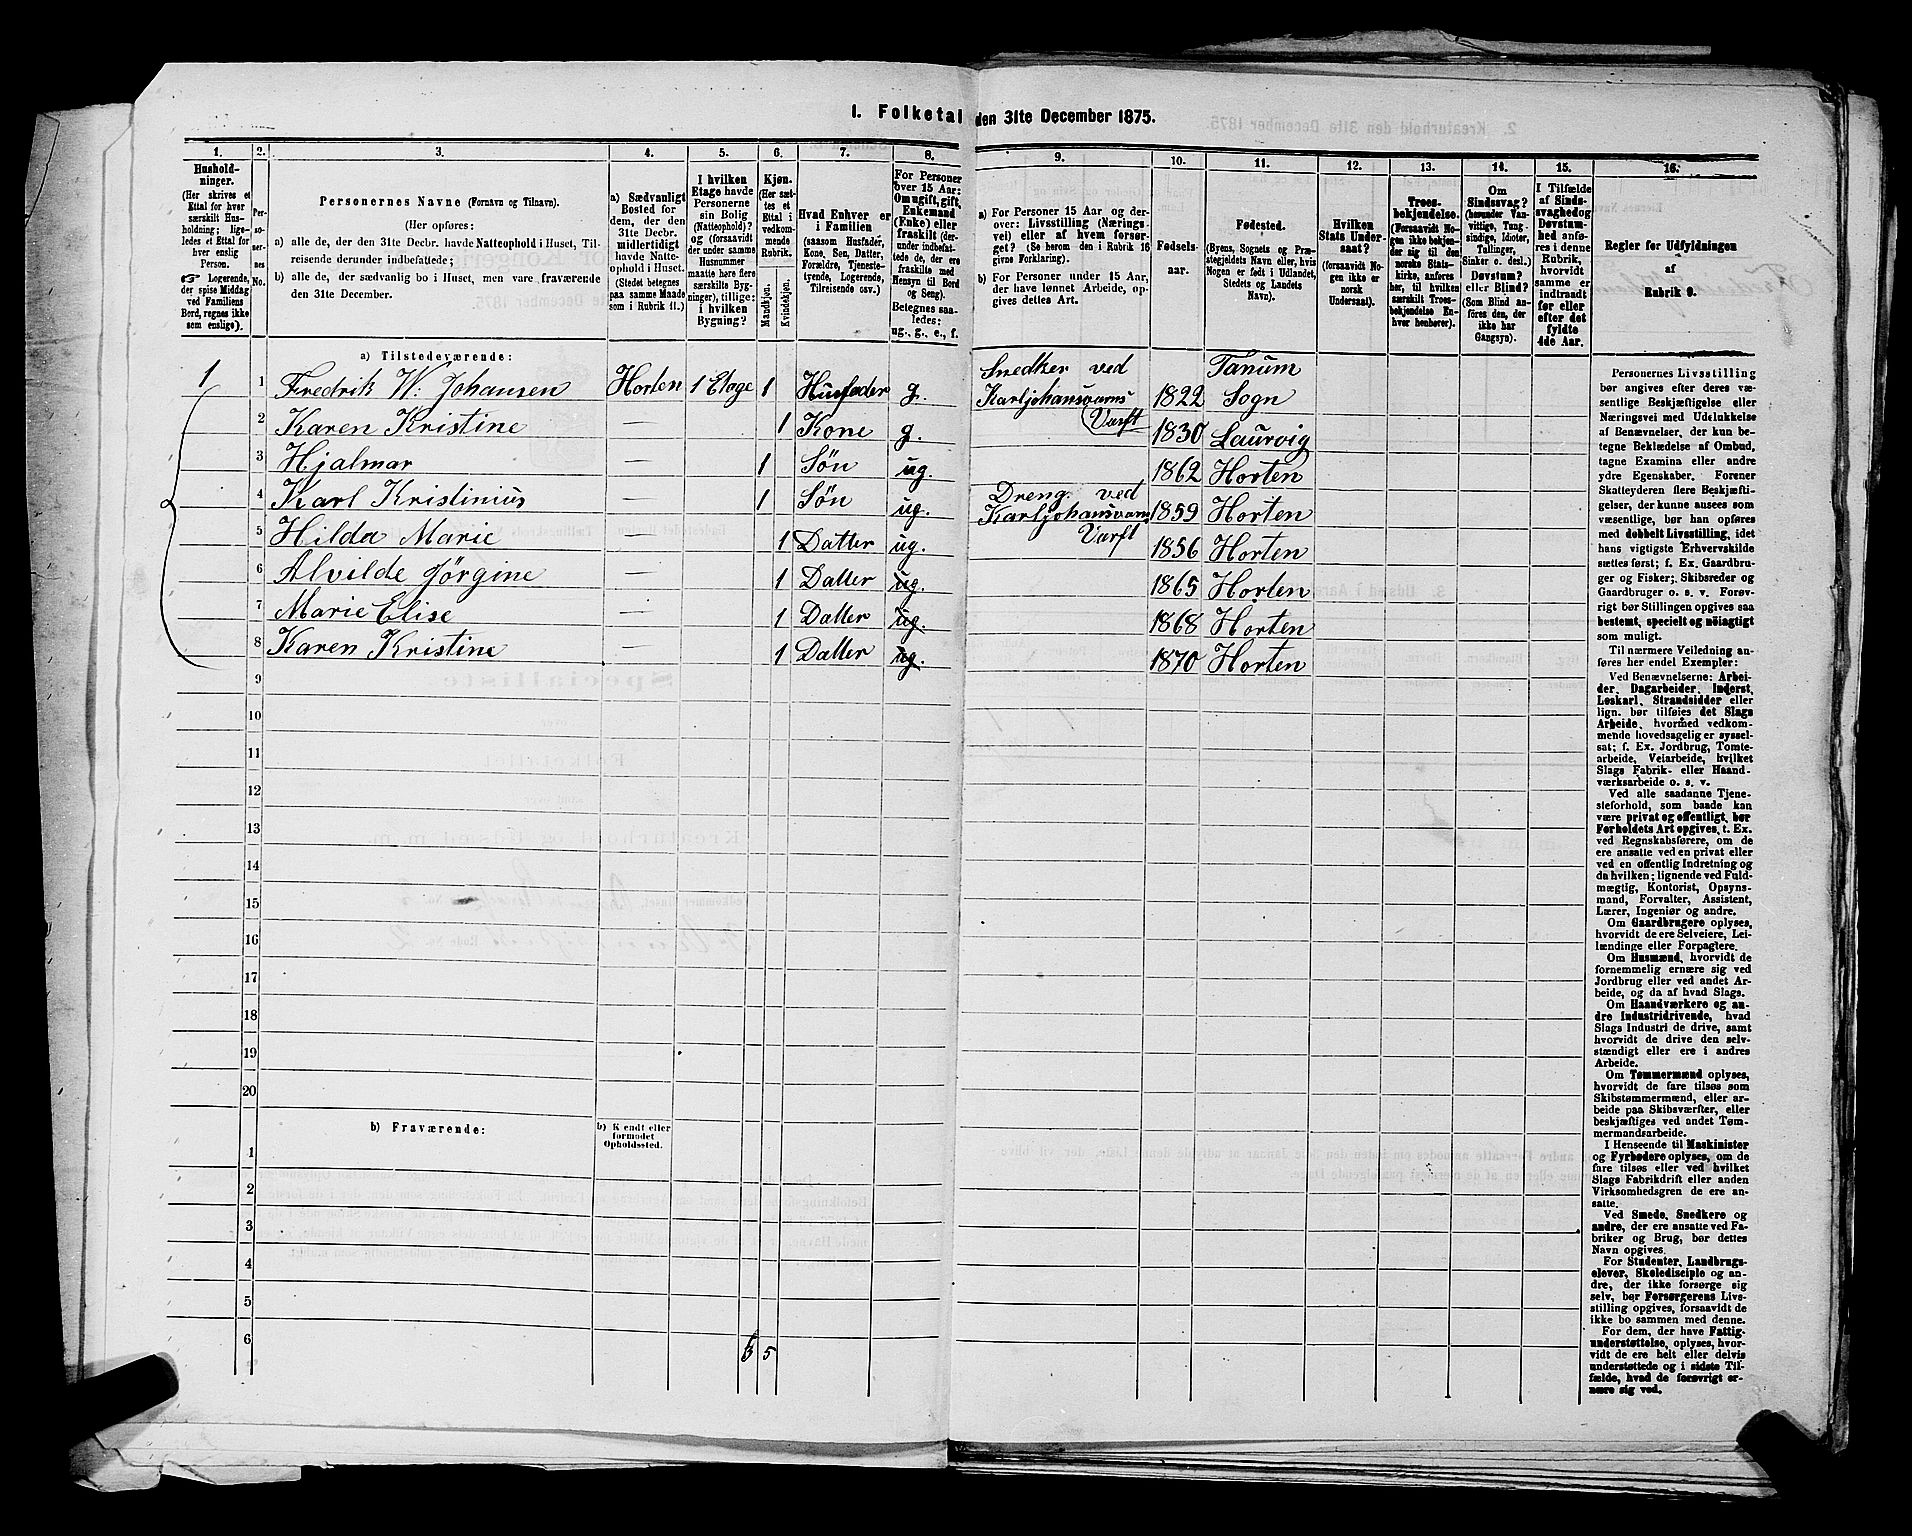 I. Folketal den 31te December 1875.
1. 2. 3. 4. 5. 6. 7. 8. 9. 10. 11. 12. 13. 14. 15. 16.
Hushold-
ninger.
(Her skrives et
Ettal for hver
særskilt Hus-
holdning; lige-
ledes et Ettal for
hver enslig
Person.
☞ Logerende,
der spise Middag
ved Familiens
Bord, regnes ikke
som enslige).
Per-
so-
ner-
nes
No.
Personernes Navne (Fornavn og Tilnavn).
(Her opføres:
a) alle de, der den 31te Decbr. havde Natteophold i Huset, Til-
reisende derunder indbefattede;
b) alle de, der sædvanlig bo i Huset, men vare fraværende
den 31te December.
a) Sædvanligt
Bosted for
dem, der den
31te Decbr.
midlertidigt
havde Natte-
ophold i Huset.
(Stedet betegnes
paa samme Maade
som i Rubrik 11.)
I hvilken
Etage havde
Personerne
sin Bolig
(Natteophold)?
og (forsaavidt
der under samme
Husnummer
maatte høre flere
særskilte Byg-
ninger), tillige:
i hvilken
Bygning?
Kjøn.
(Her sæt-
tes et
Ettal i
vedkom-
mende
Rubrik.
Mandkjøn.
Kvindekjøn.
Hvad Enhver er
i Familien
(saasom Husfader,
Kone, Søn, Datter,
Forældre, Tjeneste-
tyende, Logerende,
Tilreisende osv.)
For Personer
over 15 Aar:
Om ugift, gift,
Enkemand
(Enke) eller
fraskilt (der-
under indbefat-
tede de, der ere
fraskilte med
Hensyn til Bord
og Seng).
Betegnes saa-
ledes:
ug., g., e., f.
a) For Personer 15 Aar og der-
over: Livsstilling (Nærings-
vei) eller af hvem forsør-
get? (Se herom den i Rubrik 16
givne Forklaring).
b) For Personer under 15 Aar,
der have lønnet Arbeide, op-
gives dettes Art.
Fødsels-
aar.
Fødested.
(Byens, Sognets og Præ-
stegjeldets Navn eller, hvis
Nogen er født i Udlandet,
Stedets og Landets
Navn).
Hvilken
Stats Under-
saat?
(forsaavidt No-
gen ikke er
norsk
Undersaat).
Troes-
bekjendelse.
(Forsaavidt No-
gen ikke bekjen-
der sig til den
norske Stats-
kirke, anføres
her, til hvilken
særskilt Troes-
bekjendelse En-
hver henhører).
Om
Sindssvag?
(herunder Van-
vittige, Tung-
sindige, Idioter,
Tullinger,
Sinker o. desl.)
Døvstum?
eller Blind?
(Som Blind an-
føres den, der
ikke har
Gangsyn).
I Tilfælde
af Sinds-
svaghed og
Døvstum-
hed anfø-
res i denne
Rubrik,
hvorvidt
samme er
indtraadt
før eller
efter det
fyldte
4de Aar.
Regler for Udfyldningen
af
Rubrik 9.
a) Tilstedeværende:
1 1 Fredrik W. Johansen Horten 1 Etage 1 Husfader g. Snedker ved Karljohansværns Værft 1822 Tanum Sogn
2 Karen Kristine — 1 Kone g. 1830 Laurvig
3 Hjalmar — 1 Søn ug. 1862 Horten
4 Karl Kristinius — 1 Søn ug. Dreng ved Karljohansværns Værft 1859 Horten
5 Hilda Marie — 1 Datter ug. 1856 Horten
6 Alvilde Jørgine — 1 Datter ug. 1865 Horten
7 Marie Elise — 1 Datter ug. 1868 Horten
8 Karen Kristine — 1 Datter ug. 1870 Horten
9
10
11
12
13
14
15
16
17
18
19
20
b) Fraværende: b) Kjendt eller
formodet
Opholdssted.
1
2
3
4
5
6
3 5
Personernes Livsstilling
bør angives efter deres væ-
sentlige Beskjæftigelse eller
Næringsvei med Udelukkelse
af Benævnelser, der kun be-
tegne Beklædelse af Ombud,
tagne Examina eller andre
ydre Egenskaber. Forener
Skatteyderen flere Beskjæfti-
gelser, der kunne ansees som
væsentlige, bør han opføres
med dobbelt Livsstilling, idet
hans vigtigste Erhvervskilde
sættes først; f. Ex. Gaardbru-
ger og Fisker; Skibsreder og
Gaardbruger o. s. v. Forøv-
rigt bør Stillingen opgives saa
bestemt, specielt og nøiagtigt
som muligt.
Til nærmere Veiledning an-
føres her endel Exempler:
Ved Benævnelserne: Arbei-
der, Dagarbeider, Inderst,
Løskarl, Strandsidder eller
lign. bør tilføies det Slags
Arbeide, hvormed vedkom-
mende hovedsagelig er syssel-
sat; f. Ex. Jordbrug, Tomte-
arbeide, Veiarbeide, hvilket
Slags Fabrik- eller Haand-
værksarbeide o. s. v.
Ved alle saadanne Tjene-
steforhold, som baade kan
være privat og offentligt, bør
Forholdets Art opgives, t. Ex.
ved Regnskabsførere, om de
ere ansatte ved en privat eller
ved en offentlig Indretning og
da hvilken; lignende ved Fuld-
mægtig, Kontorist, Opsyns-
mand, Forvalter, Assistent,
Lærer, Ingeniør og andre.
Om Gaardbrugere oplyses,
hvorvidt de ere Selveiere, Lei-
lændinge eller Forpagtere.
Om Husmænd, hvorvidt de
fornemmelig ernære sig ved
Jordbrug eller ved andet Ar-
beide, og da af hvad Slags.
Om Haandværkere og an-
dre Industridrivende, hvad
Slags Industri de drive, samt
hvorvidt de drive den selv-
stændigt eller ere i andres
Arbeide.
Om Tømmermænd oplyses,
hvorvidt de fare tilsøs som
Skibstømmermænd, eller ar-
beide paa Skibsværfter, eller
beskjæftiges ved andet Tøm-
mermandsarbeide.
I Henseende til Maskinister
og Fyrbødere oplyses, om de
fare tilsøs eller ved hvilket
Slags Fabrikdrift eller anden
Virksomhedsgren de ere an-
satte.
Ved Smede, Snedkere og
andre, der ere ansatte ved Fa-
briker og Brug, bør dettes
Navn opgives.
For Studenter, Landbrugs-
elever, Skoledisciple og an-
dre, der ikke forsørge sig
selv, bør Forsørgerens Livs-
stilling opgives, forsaavidt de
ikke bo sammen med denne.
For dem, der have Fattig-
understøttelse, oplyses, hvor-
vidt de ere helt eller delvis
understøttede og i sidste Til-
fælde, hvad de forøvrigt er-
nære sig ved.